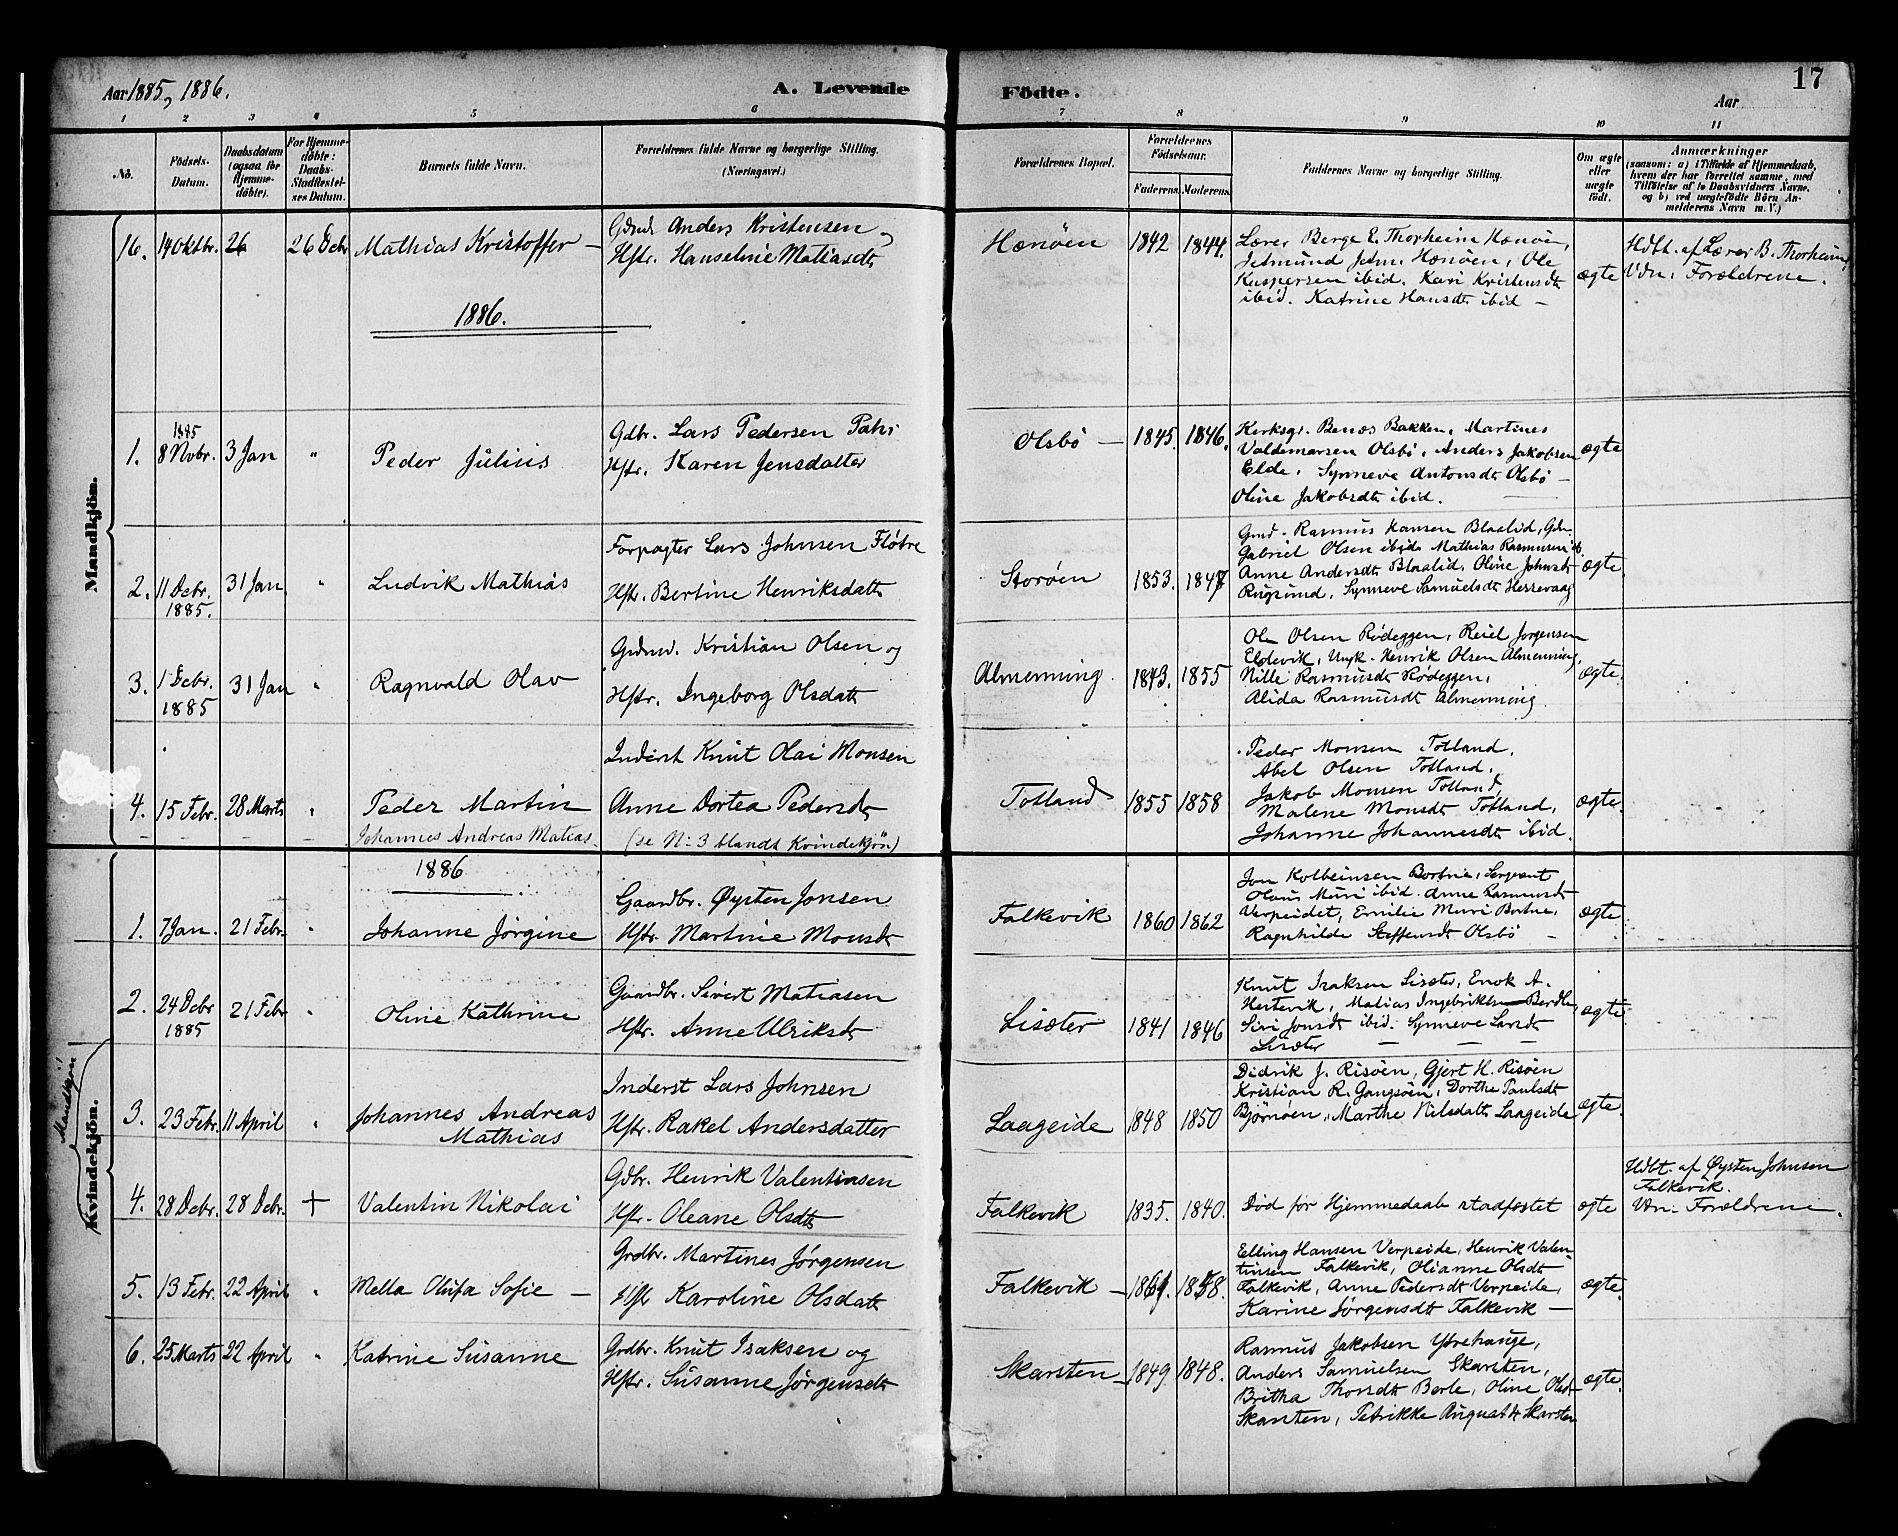 Aar 1885, 1886.
A. Levende
Födte.
17
Aar
1 2 3 4 5 6 7 8 9 10 11
No.
Födsels-Datum.
Daabsdatum (ogsaa for Hjemmedöbte).
For Hjemmedöbte: Daabs-Stadfæstelses Datum.
Barnets fulde Navn.
Forældrenes fulde Navne og borgerlige Stilling. (Næringsvei.)
Forældrenes Bopæl.
Forældrenes Födselsaar.
Faderens. Moderens.
Faddernes Navne og borgerlige Stilling.
Om ægte eller uægte födt.
Anmærkninger
(saasom: a) i Tilfælde af Hjemmedaab, hvem der har forrettet samme, med Tilföielse af to Daabsvidners Navne, og b) ved uægtefödte Börn Anmelderens Navn m. V.)
Mandkjön.
16. 14 Oktbr. 26 26 Debr Mathias Kristoffer –
Gdmd Anders Kristensen
Hstr. Hanseline Matiasdtr
Hænöen 1842 1844.
Lærer Berge E. Thorheim Hænöen,
Jetmund Jetm. Hænöen, Ole
Kaspersen ibid. Kari Kristensdtr
ibid. Katrine Hansdtr ibid –
ægte
Hdbt. af Lærer B. Thorheim
Vdn. Forældrene.
1886.
1. 1885 8 Novbr. 3 Jan " Peder Julius
Gdbr. Lars Pedersen
Hstr. Karen Jensdatter
Olsbö – 1845. 1846.
Kirksgr. Benæs Bakken, Martines
Valdemarsen Olsbö, Anders Jakobsen
Elde, Synneve Antonsdtr Olsbö –
Oline Jakobsdtr ibid.
ægte
2. 11 Debr. 1885. 31 Jan " Ludvik Mathias
Forpagter Lars Johnsen Flötre
Hstr. Bertine Henriksdatter
Storöen 1853. 1847
Gmd. Rasmus Hansen Blaalid, Gdm.
Gabriel Olsen ibid. Mathias Rasmussen ib.
Anne Andersdtr Blaalid, Oline Johnsdtr
Rugsund, Synneve Samuelsdtr Hessevaag
ægte.
3. 1 Debr. 1885 31 Jan " Ragnvald Olav
Grdmd. Kristian Olsen og
Hstr. Ingeborg Olsdatter
Almenning. 1843. 1855
Ole Olsen Rödeggen, Reiel Jorgensen
Eldevik, Ungk. Henrik Olsen Almenning,
Nille Rasmusdtr Rödeggen,
Alida Rasmusdtr Almenning.
ægte.
4. 15 Febr. 28 Marts " Peder Martin
Inderst Knut Olai Monsen
Anne Dortea Pedersdtr
Totland 1855 1858
Peder Monsen Totland,
Abel Olsen Totland,
Jakob Monsen Totland,
Malene Monsdtr Totland,
Johanne Johannesdtr ibid.
ægte.
– – – Johannes Andreas Matias. (se N: 3 blandt Kvindekjön)
1886
Kvindekjön.
Mandkjön!
1. 7 Jan. 21 Febr. " Johanne Jörgine
Gaardbr. Øysten Jonsen
Hstr. Martine Monsdtr
Falkevik 1860 1862
Jon Kolbeinsen Bortne, Sergeant
Olaus Muri ibid. Anne Rasmusdtr
Verpeidet, Emilie Muri Bortne,
Ragnhilde Steffensdtr Olsbö –
ægte.
2. 24 Debr 1885 21 Febr " Oline Kathrine
Gaardbr. Sivert Matiasen
Hstr. Anne Ulriksdtr
Lisæter 1841 1846
Knut Isaksen Lisæter, Enok A.
Hertevik, Matias Ingebriktsen Berdle,
Siri Jonsdtr ibid. Synneve Larsdtr
Lisæter – – –
ægte.
3. 23 Febr. 11 April " Johannes Andreas
Mathias
Inderst Lars Johnsen
Hstr. Rakel Andersdatter
Laageide 1848 1850
Didrik J. Risöen, Gjert H. Risöen
Kristian R. Gangsöen, Dorthe Paulsdtr
Björnöen, Marthe Nilsdatter Laageide
ægte.
4. 28 Debr. 28 Debr. + Valentin Nikolai
Gdbr. Henrik Valentinsen
Hstr. Oleane Olsdtr
Falkevik 1835. 1840.
Död för Hjemmedaab stadfæstet
ægte
Hdbt. af Øysten Johnsen
Falkevik.
Vdn. Forældrene.
5. 13 Febr. 22 April " Mella Olufa Sofie –
Grdbr. Martines Jörgensen
Hstr Karoline Olsdatter
Falkevik – 1861. 1858.
Elling Hansen Verpeide, Henrik Valen-
tinsen Falkevik, Olianne Olsdtr
Falkevik, Anne Pedersdtr Verpeide,
Karine Jörgensdtr Falkevik –
ægte.
6. 25 Marts 22 April " Katrine Susanne
Grdbr. Knut Isaksen og
Hstr. Susanne Jörgensdtr
Skarsten – 1849. 1848.
Rasmus Jakobsen Ytrehauge,
Anders Samuelsen Skarsten,
Britha Thorsdtr Berle, Oline Olsdtr
Skarsten, Petrikke Augustdtr Skarsten
ægte.